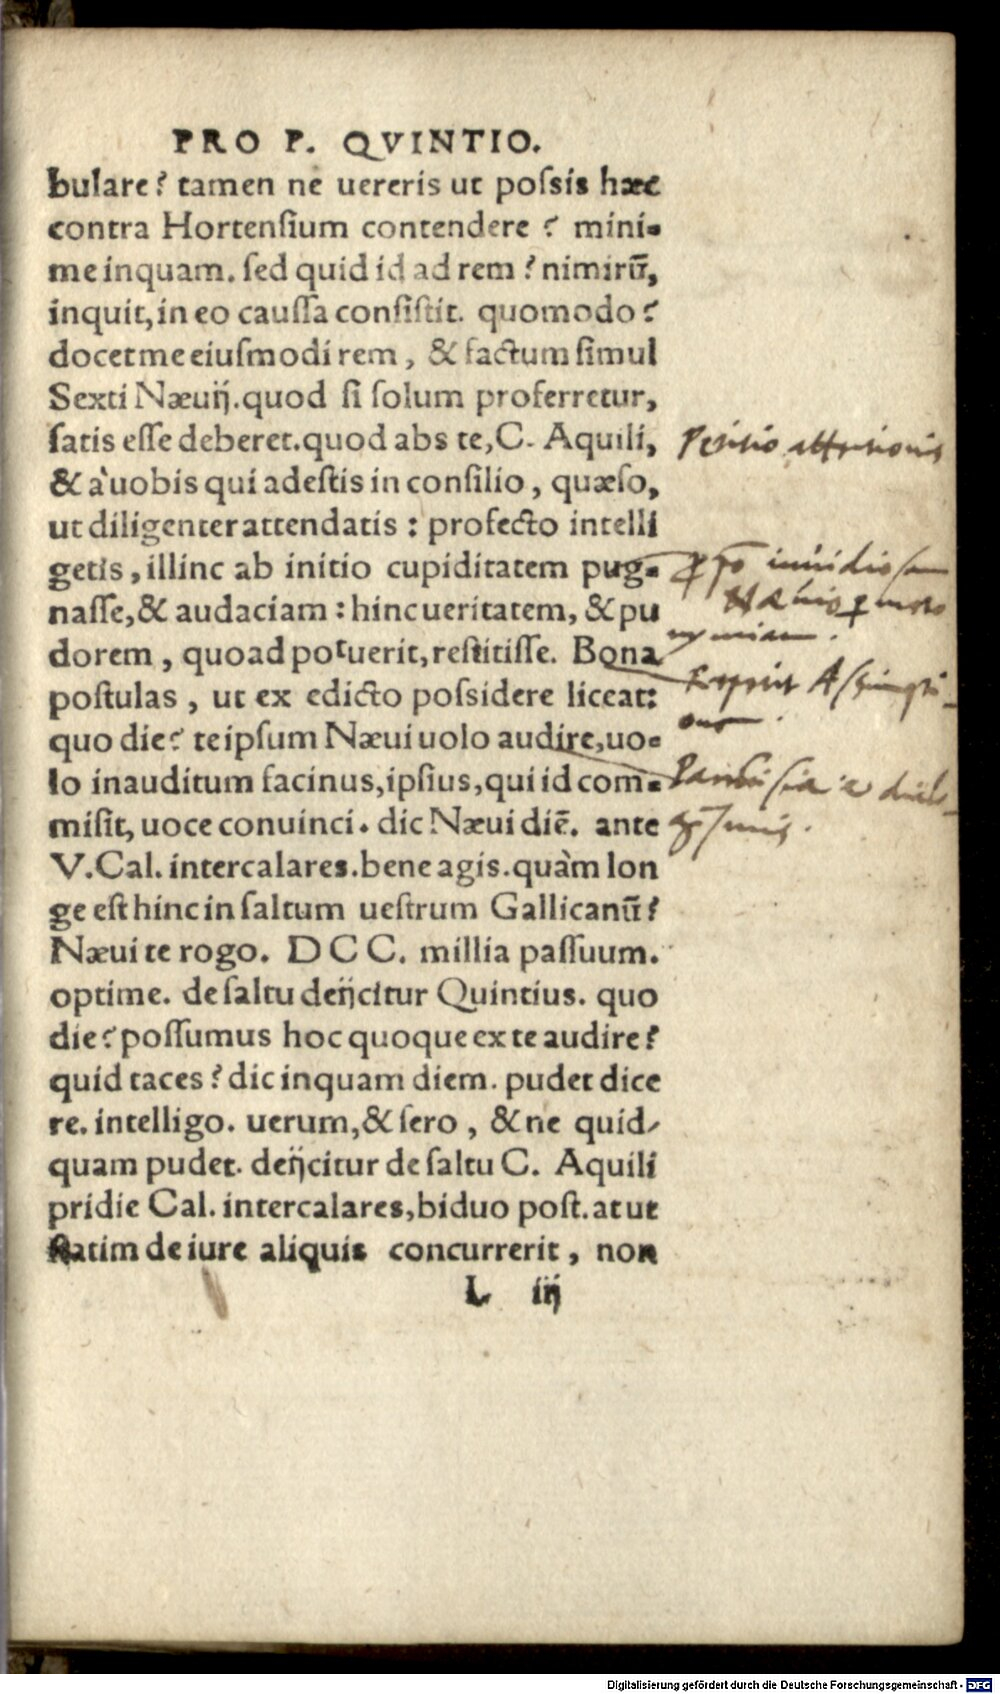 PRO P. QVINTIO.
bulare? tamen ne uereris ut poſsis hæc
contra Hortenſium contendere? mini-
me inquam. ſed quid id ad rem? nimirū,
inquit, in eo cauſſa conſiſtit. quomodo?
docet me eiuſmodi rem, & factum ſimul
Sexti Næuij. quod ſi ſolum proferretur,
ſatis eſſe deberet. quod abs te, C. Aquili,
& à uobis qui adeſtis in conſilio, quæſo,
ut diligenter attendatis: profecto intelli
getis, illinc ab initio cupiditatem pug-
naſſe, & audaciam: hinc ueritatem, & pu
dorem, quoad potuerit, reſtitiſſe. Bona
poſtulas, ut ex edicto poſsidere liceat:
quo die? te ipſum Næui uolo audire, uo-
lo inauditum facinus, ipſius, qui id com-
miſit, uoce conuinci. dic Næui diē. ante
V. Cal. intercalares. bene agis. quàm lon
ge eſt hinc in ſaltum ueſtrum Gallicanū?
Næui te rogo. DCC. millia paſſuum.
optime. de ſaltu deijcitur Quintius. quo
die? poſſumus hoc quoque ex te audire?
quid taces? dic inquam diem. pudet dice
re. intelligo. uerum, & ſero, & ne quid-
quam pudet. deijcitur de ſaltu C. Aquili
pridie Cal. intercalares, biduo poſt. at ut
ſtatim de iure aliquis concurrerit, non
L iij
Petitio attentionis
inuidioſam
Aſſumpti-
one.
Digitalisierung gefördert durch die Deutsche Forschungsgemeinschaft - DFG